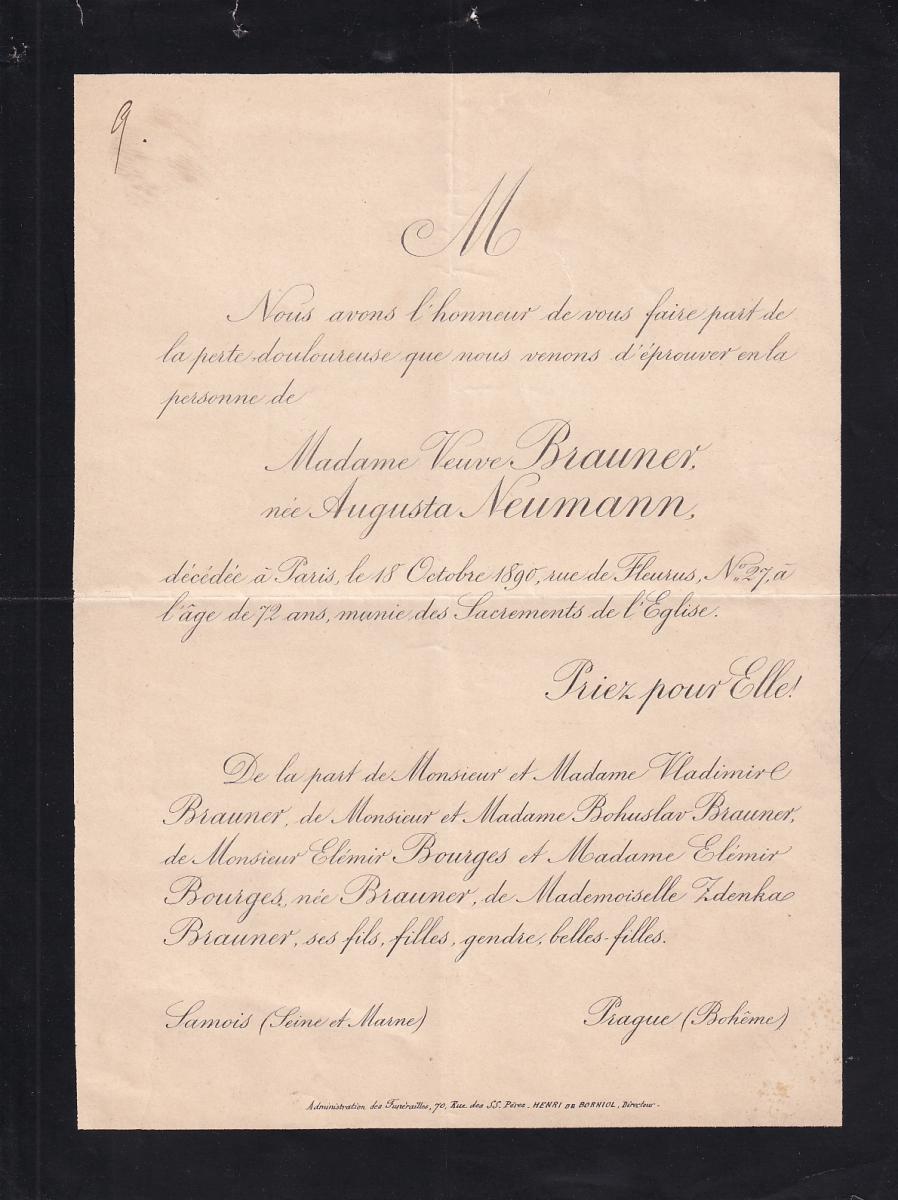 9.
M
Nous avons l'honneur de vous faire part de
la perte douloureuse que nous venons d'éprouver en la
personne de
Madame Veuve Brauner,
née Augusta Neumann,
décédée à Paris, le 18 Octobre 1890, rue de Fleurus, No 27, à
l'âge de 72 ans, munie des Sacrements de l'Eglise.
Priez pour Elle!
De la part de Monsieur et Madame Vladimir
Brauner, de Monsieur et Madame Bohuslav Brauner,
de Monsieur Elémir Bourges et Madame Elémir
Bourges, née Brauner, de Mademoiselle Zdenka
Brauner, ses fils, filles, gendre, belles-filles.
Samois (Seine et Marne)
Prague (Bohême)
Administration des Funérailles, 70, Rue des SS. Pères. HENRI DE BORNIOL, Directeur.